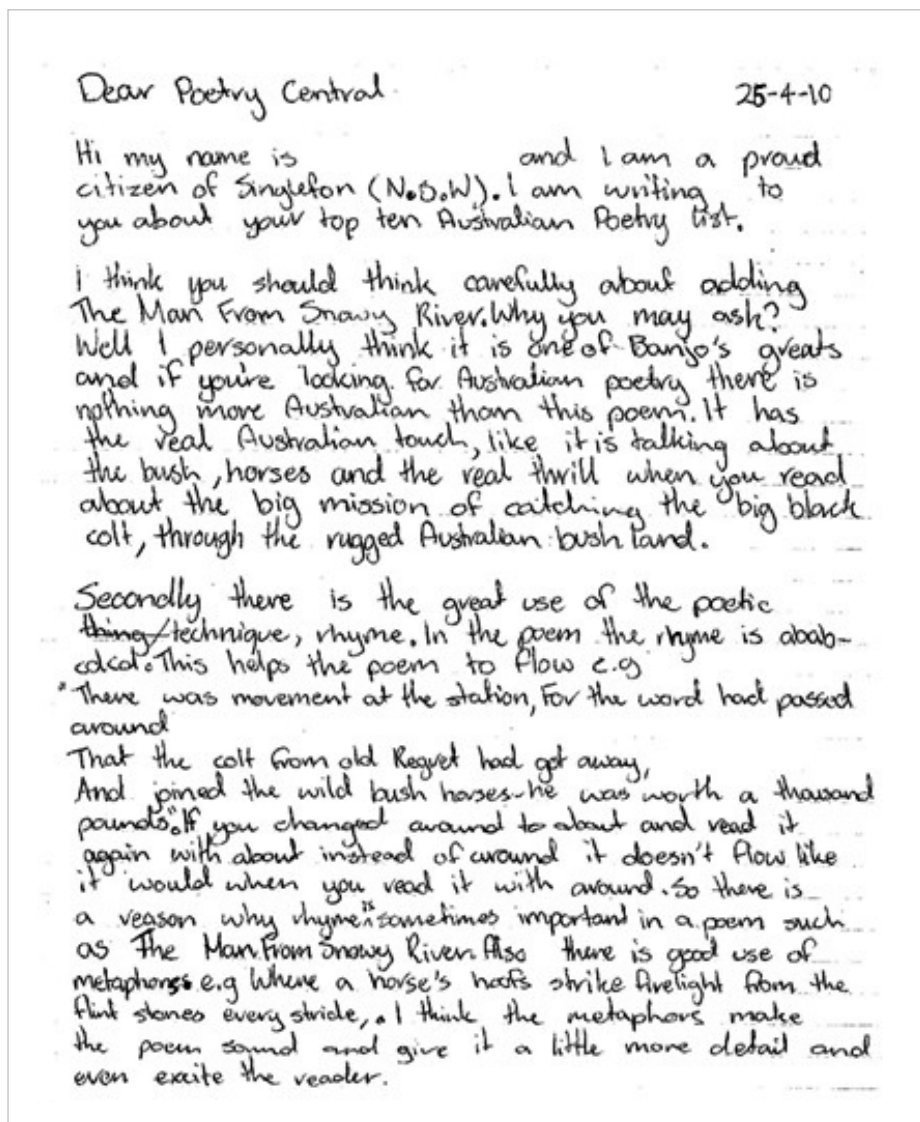 Dear Poetry Central 25-4-10
Hi my name is and I am a proud
citizen of Singleton (N.S.W). I am writing to
you about your top ten Australian Poetry list.
I think you should think carefully about adding
The Man From Snowy River. Why you may ask?
Well I personally think it is one of Banjo's greats
and if you're looking for Australian poetry there is
nothing more Australian than this poem. It has
the real Australian touch, like it is talking about
the bush, horses and the real thrill when you read
about the big mission of catching the big black
colt, through the rugged Australian bush land.
Secondly there is the great use of the poetic
thing/technique, rhyme. In the poem the rhyme is abab-
cdcd. This helps the poem to flow e.g
"There was movement at the station, For the word had passed
around
That the colt from old Regret had got away,
And joined the wild bush horses-he was worth a thousand
pounds". If you changed around to about and read it
again with about instead of around it doesn't flow like
it would when you read it with around. So there is
a reason why rhyme is sometimes important in a poem such
as The Man From Snowy River. Also there is good use of
metaphores e.g Where a horse's hoofs strike firelight from the
flint stones every stride,. I think the metaphors make
the poem sound and give it a little more detail and
even excite the reader.